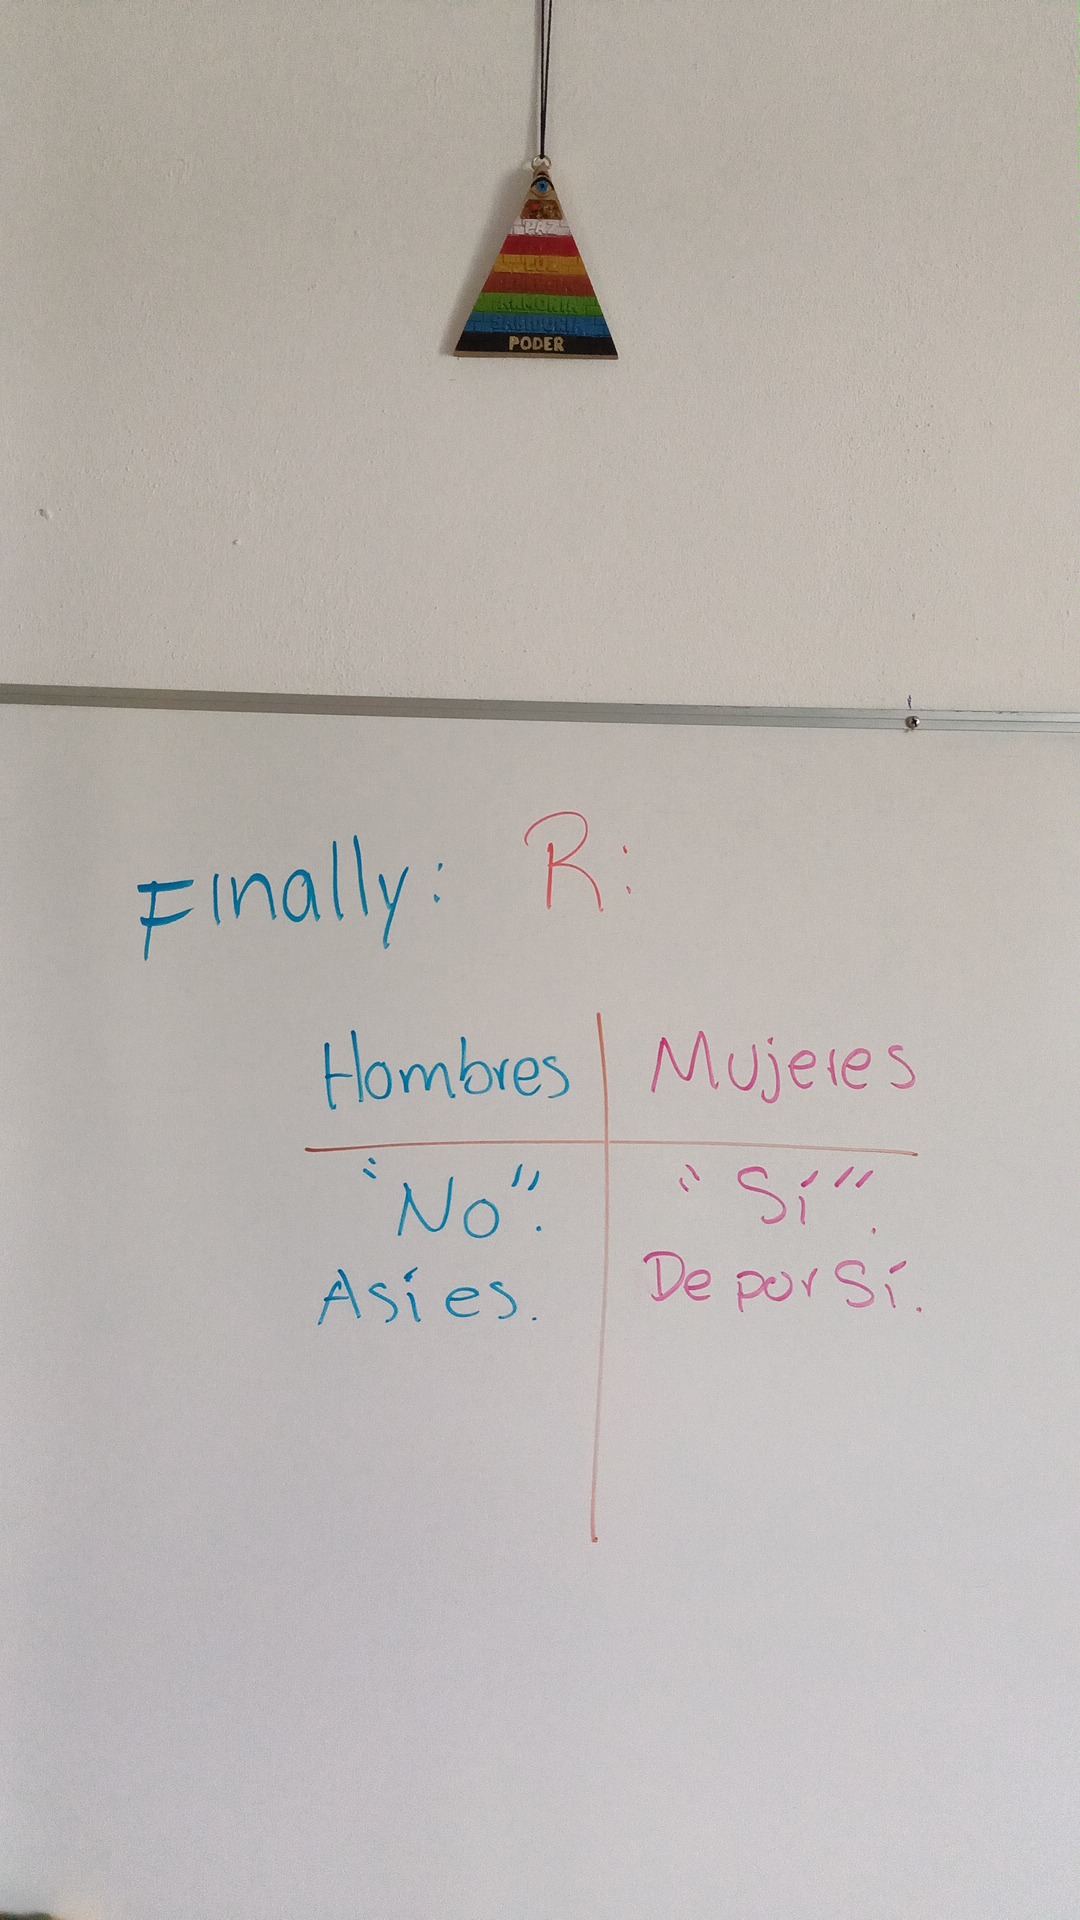 PAZ
LUZ
ARMONIA
SABIDURIA
PODER
Finally: R:
Hombres Mujeres
"No". "Sí".
Así es. De por Sí.